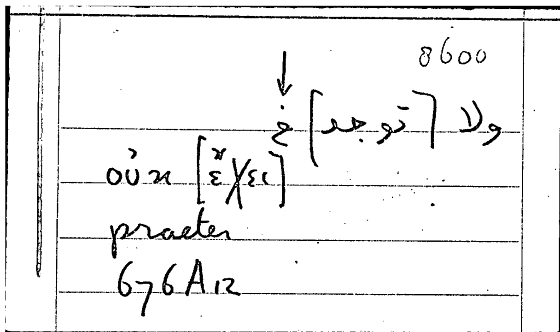 8600
ولا [توجد] خ
οὐκ [ἔχει]
praeter
676A12